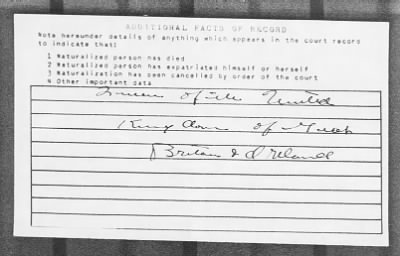 ADDITIONAL FACTS OF RECORD
Note hereunder details of anything which appears in the court record
to indicate that:
1 Naturalized person has died
2 Naturalized person has expatriated himself or herself
3 Naturalization has been cancelled by order of the court
4 Other important data
of the United
Kingdom of Great
Britain & Ireland